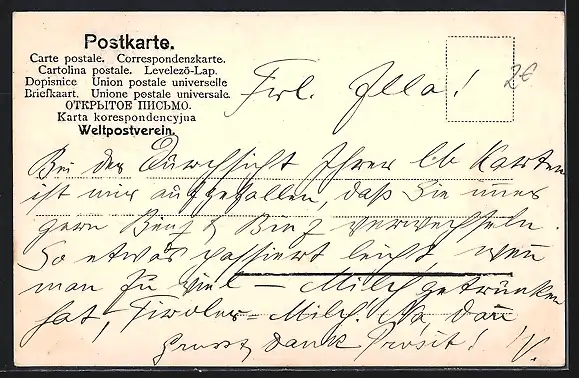 Postkarte.
Carte postale. Correspondenzkarte.
Cartolina postale. Levelező-Lap.
Dopisnice Union postale universelle
Briefkaart. Unione postale universale.
ОТКРЫТОЕ ПИСЬМО.
Karta korespondencyjna
Weltpostverein.
2€
Frl. Ella!
Bei der Durchsicht Ihrer lb Karten
ist mir aufgefallen, daß Sie immer
gern & verwechseln.
So etwas passiert leicht, wenn
man zu viel – Milch getrunken
hat, Tiroler-Milch! Na, dann
Dank Prosit! V.